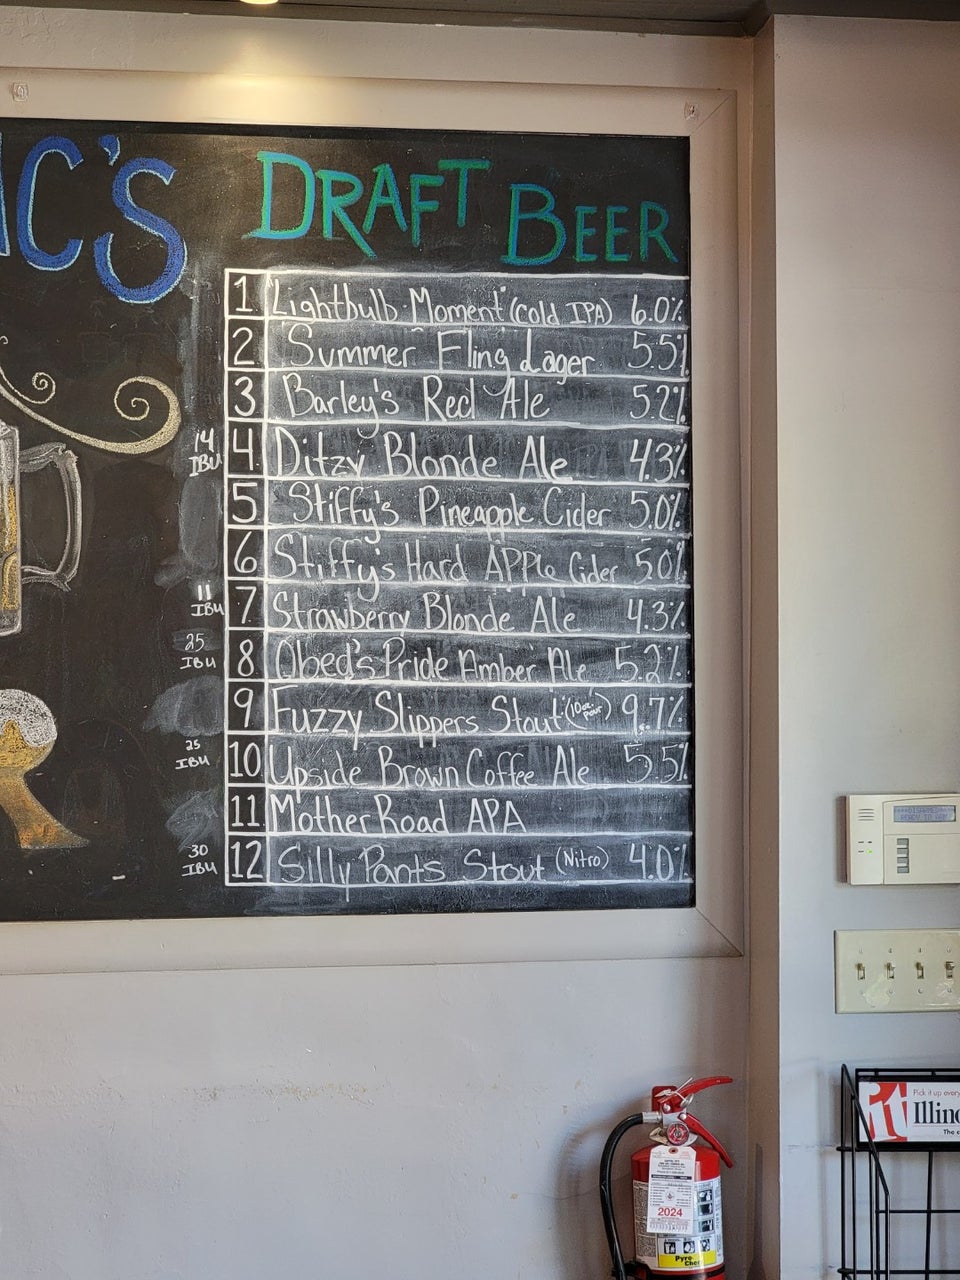 IC'S
DRAFT BEER
1 "Lightbulb Moment" (cold IPA) 6.0%
2 Summer Fling Lager 5.5%
3 Barley's Red Ale 5.2%
14 IBU
4 Ditzy Blonde Ale 4.3%
5 Stiffy's Pineapple Cider 5.0%
6 Stiffy's Hard APPle Cider 5.0%
11 IBU
7 Strawberry Blonde Ale 4.3%
25 IBU
8 Obed's Pride Amber Ale 5.2%
9 Fuzzy Slippers Stout (10oz. pour) 9.7%
25 IBU
10 Upside Brown Coffee Ale 5.5%
11 Mother Road APA
30 IBU
12 Silly Pants Stout (Nitro) 4.0%
READY TO ARM
it
Pick it up every
Illino
The c
2024
Pyro
Chem